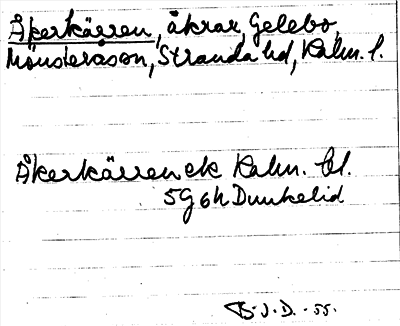 Åkerkärren, åkrar, Gelebo,
Mönsteråson, Stranda hd, Kalm. l.
Åkerkärren ek Kalm. bl.
5G 6h Dunkelid
B.J.D. -55.